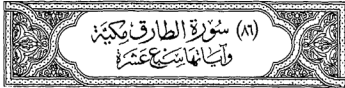 (٨٦) سُورَة الطَّارِق مَكِيَّة
وَآيَانُهَا سَبْعَ عَشَرَة